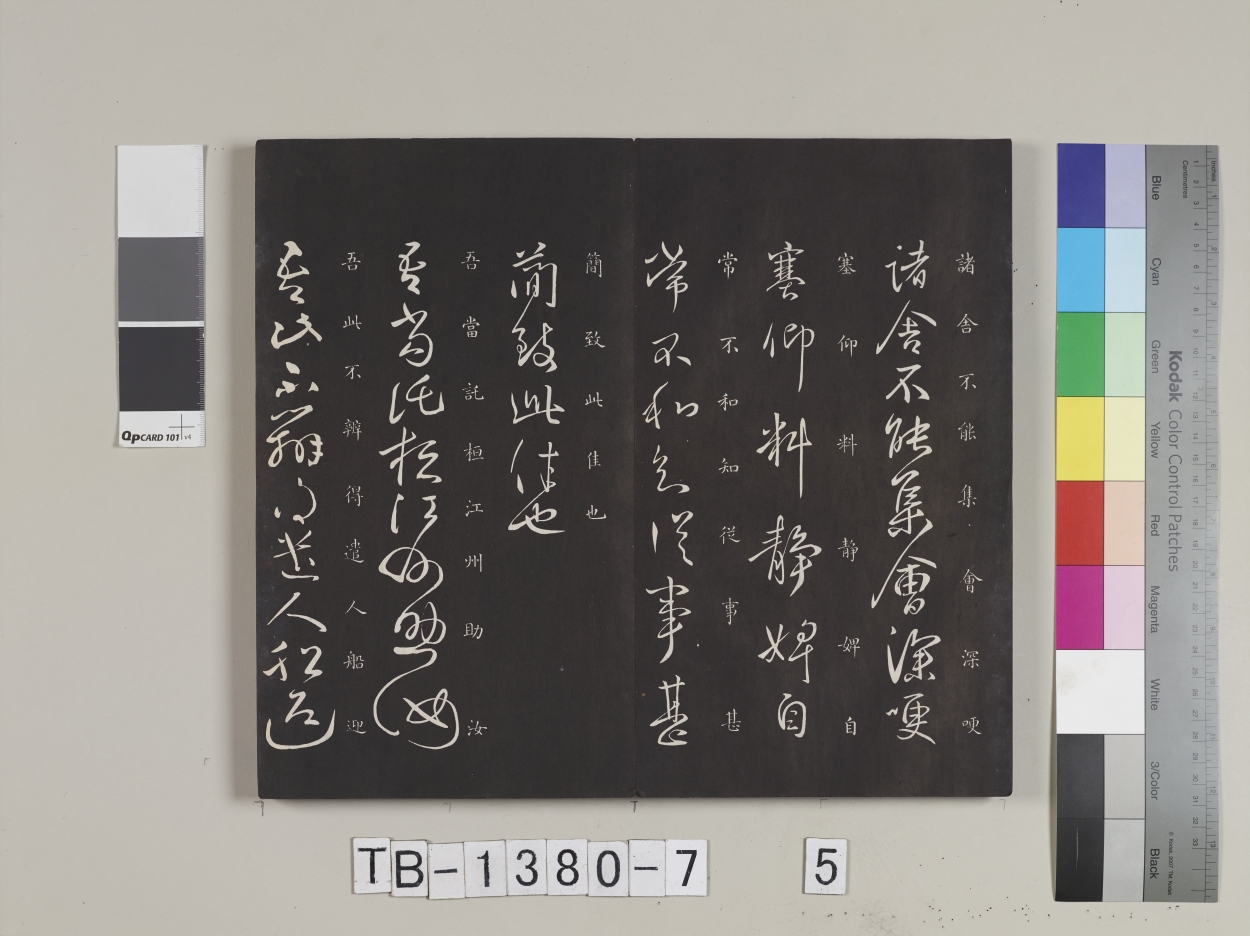 諸舍不能集會深哽
諸舍不能集會深哽
塞仰料靜婢自
塞仰料静婢自
常不和知從事甚
常不和知従事甚
簡致此佳也
簡致此佳也
吾當託桓江州助汝
吾當託桓江州助汝
吾此不辦得遣人船迎
吾此不辦得遣人船迎
QPCARD 101 v4
Kodak Color Control Patches
Blue
Cyan
Green
Yellow
Red
Magenta
White
3/Color
Black
Inches
Centimetres
© Kodak, 2007 TM: Kodak
TB-1380-7 5